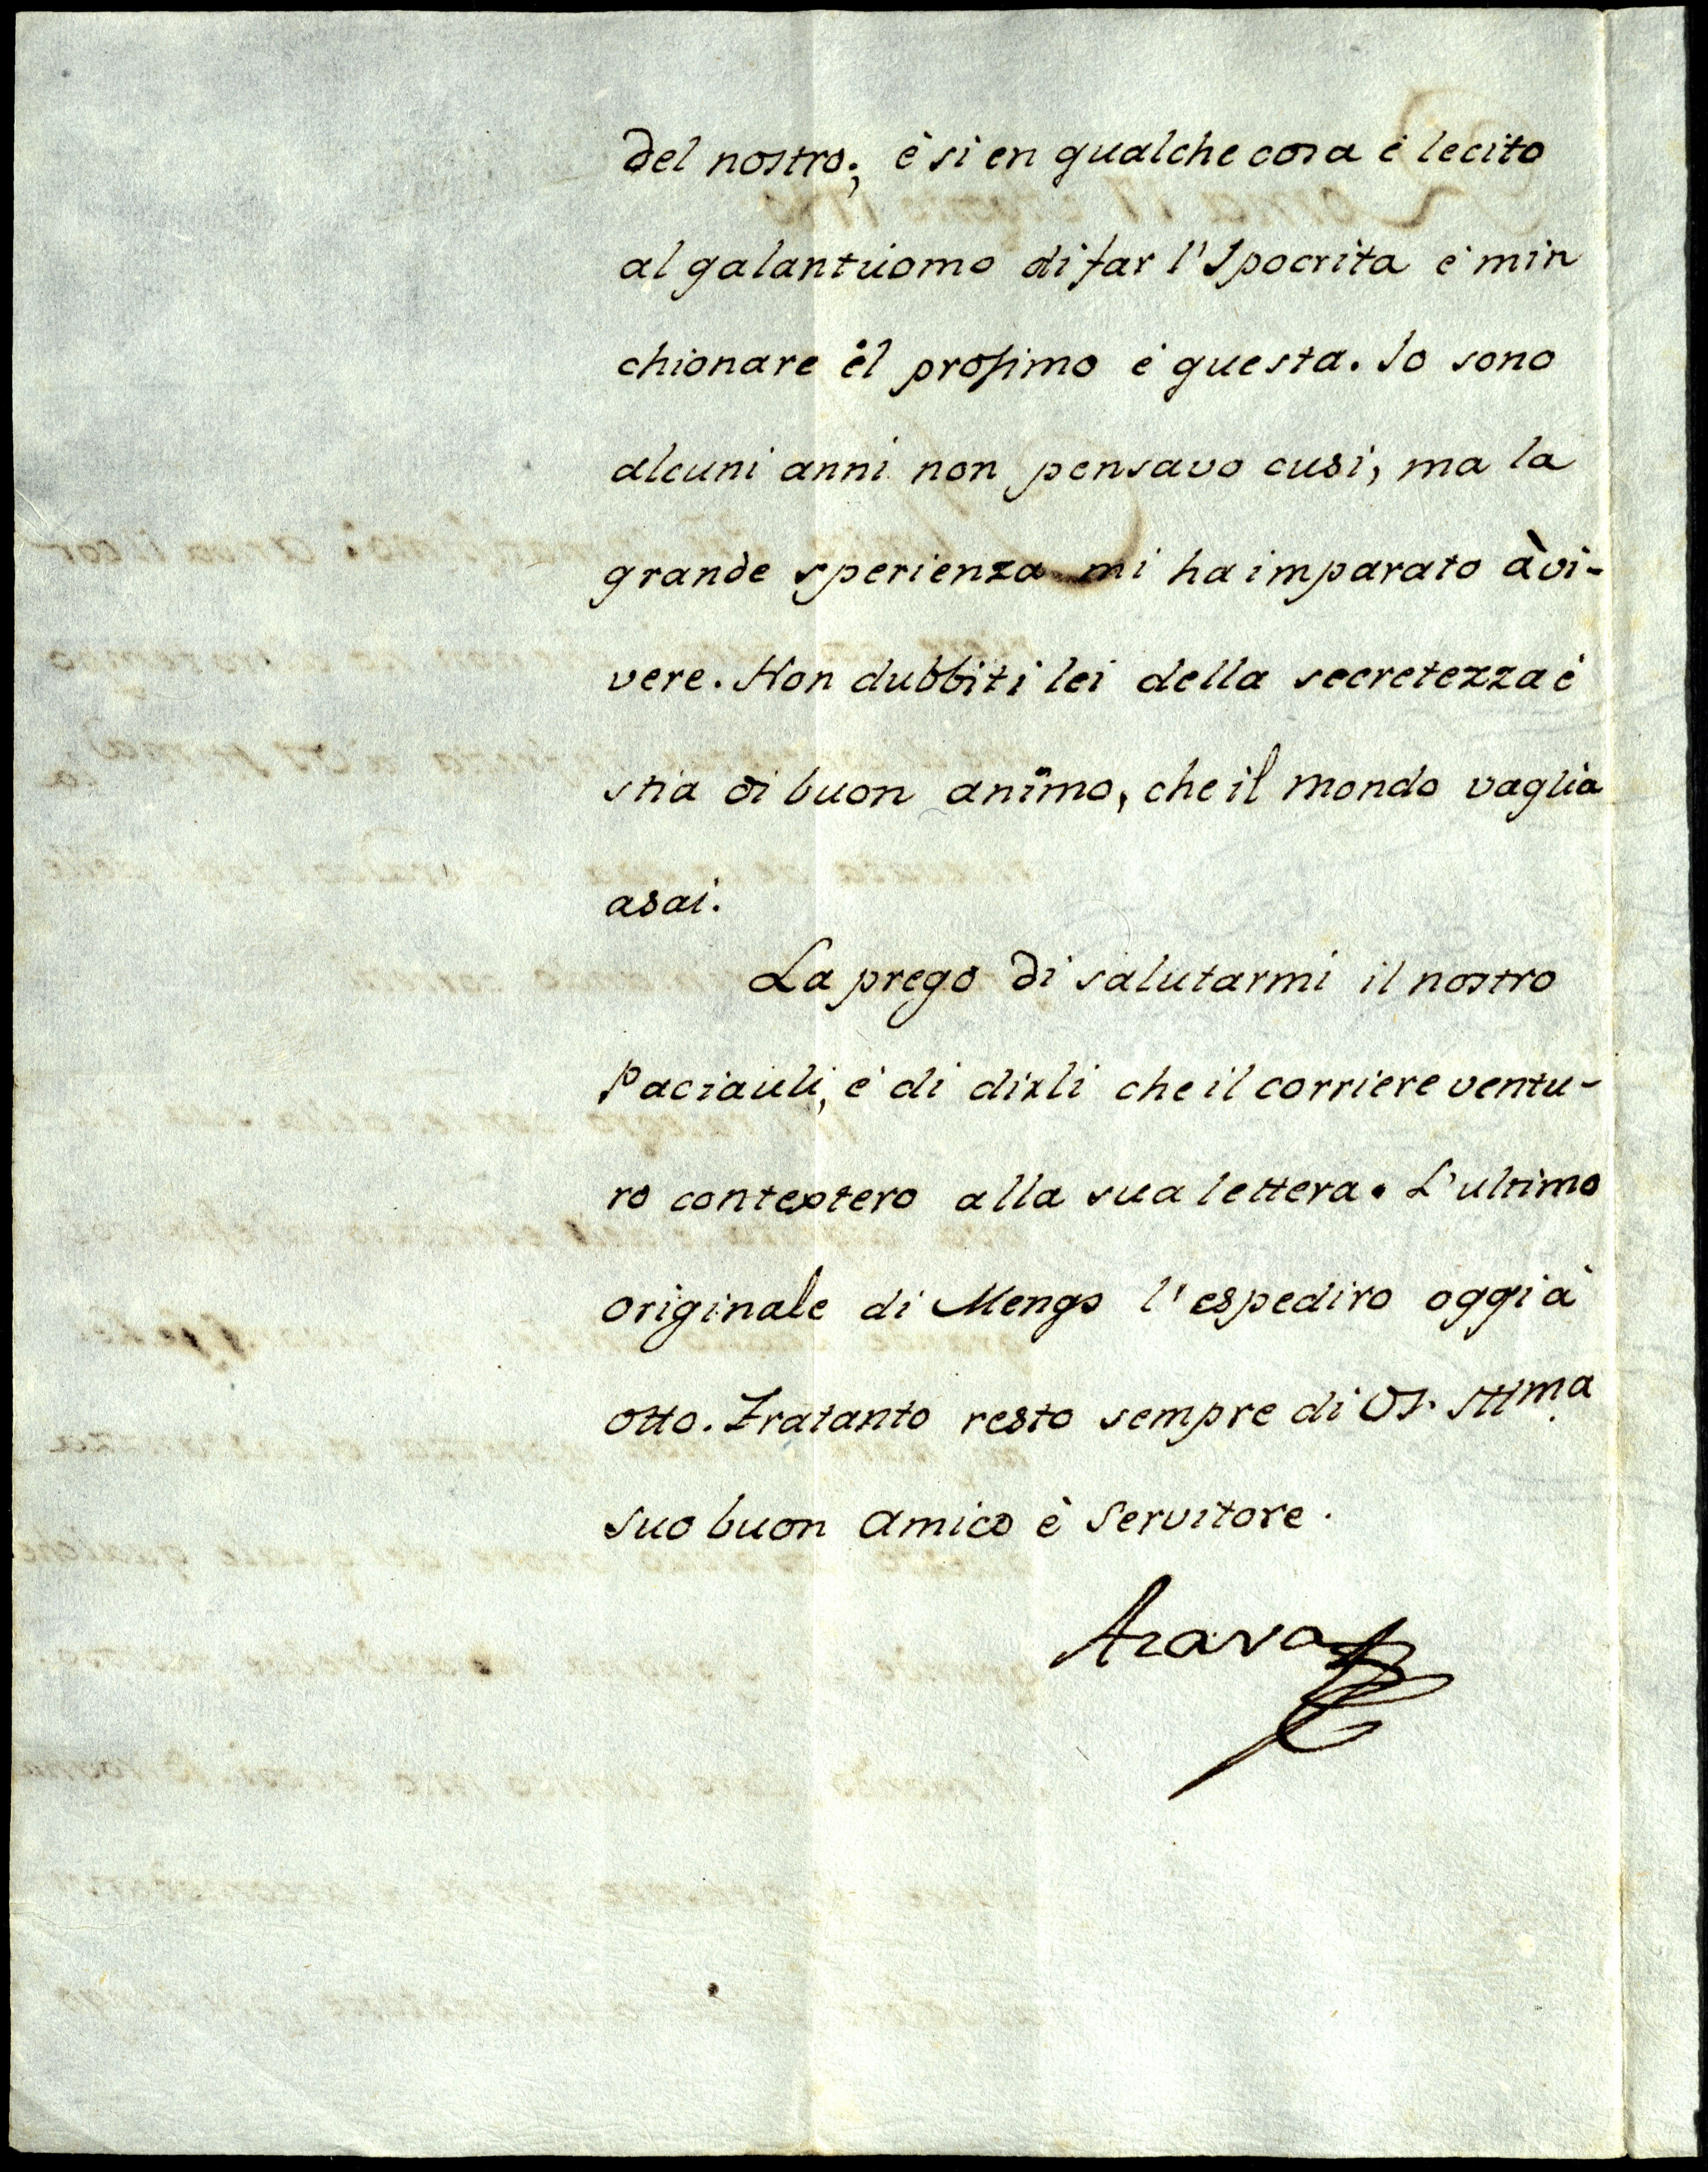 del nostro; è si en qualche cosa è lecito
al galantuomo di far l'Ipocrita è min
chionare èl prossimo è questa. Io sono
alcuni anni non pensavo cusi, ma la
grande sperienza mi ha imparato à vi-
vere. Non dubbiti lei della secretezza è
stia di buon animo, che il mondo vaglia
asai.
La prego di salutarmi il nostro
Paciauli, è di dirli che il corriere ventu-
ro contestero alla sua lettera. L'ultimo
originale di Mengs l'espediro oggi à
otto. Tratanto resto sempre di VS. Illma
suo buon Amico è Servitore.
Azara